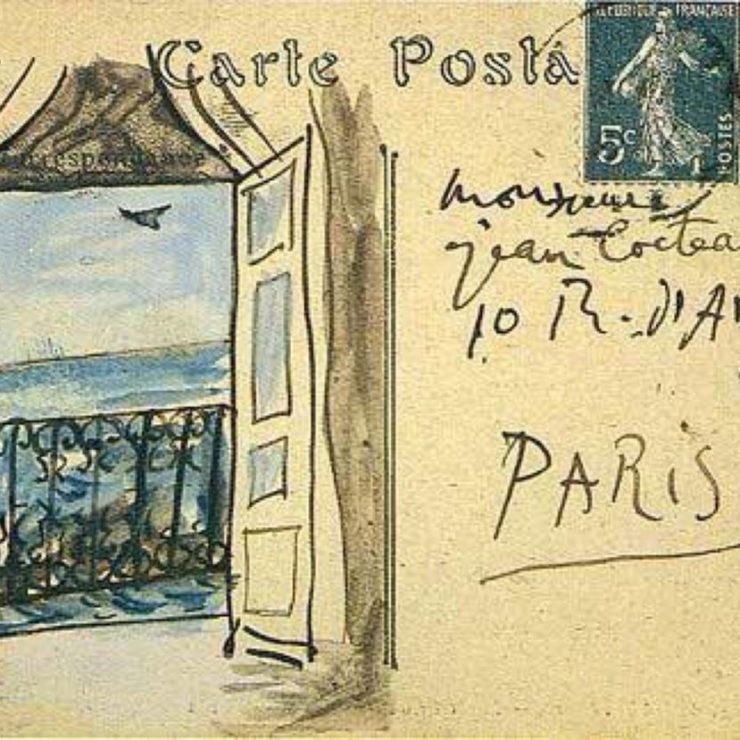 Carte Posta
Correspondance
RÉPUBLIQUE FRANÇAISE
5c
POSTES
Monsieur
jean Cocteau
10 R. d'A
PARIS